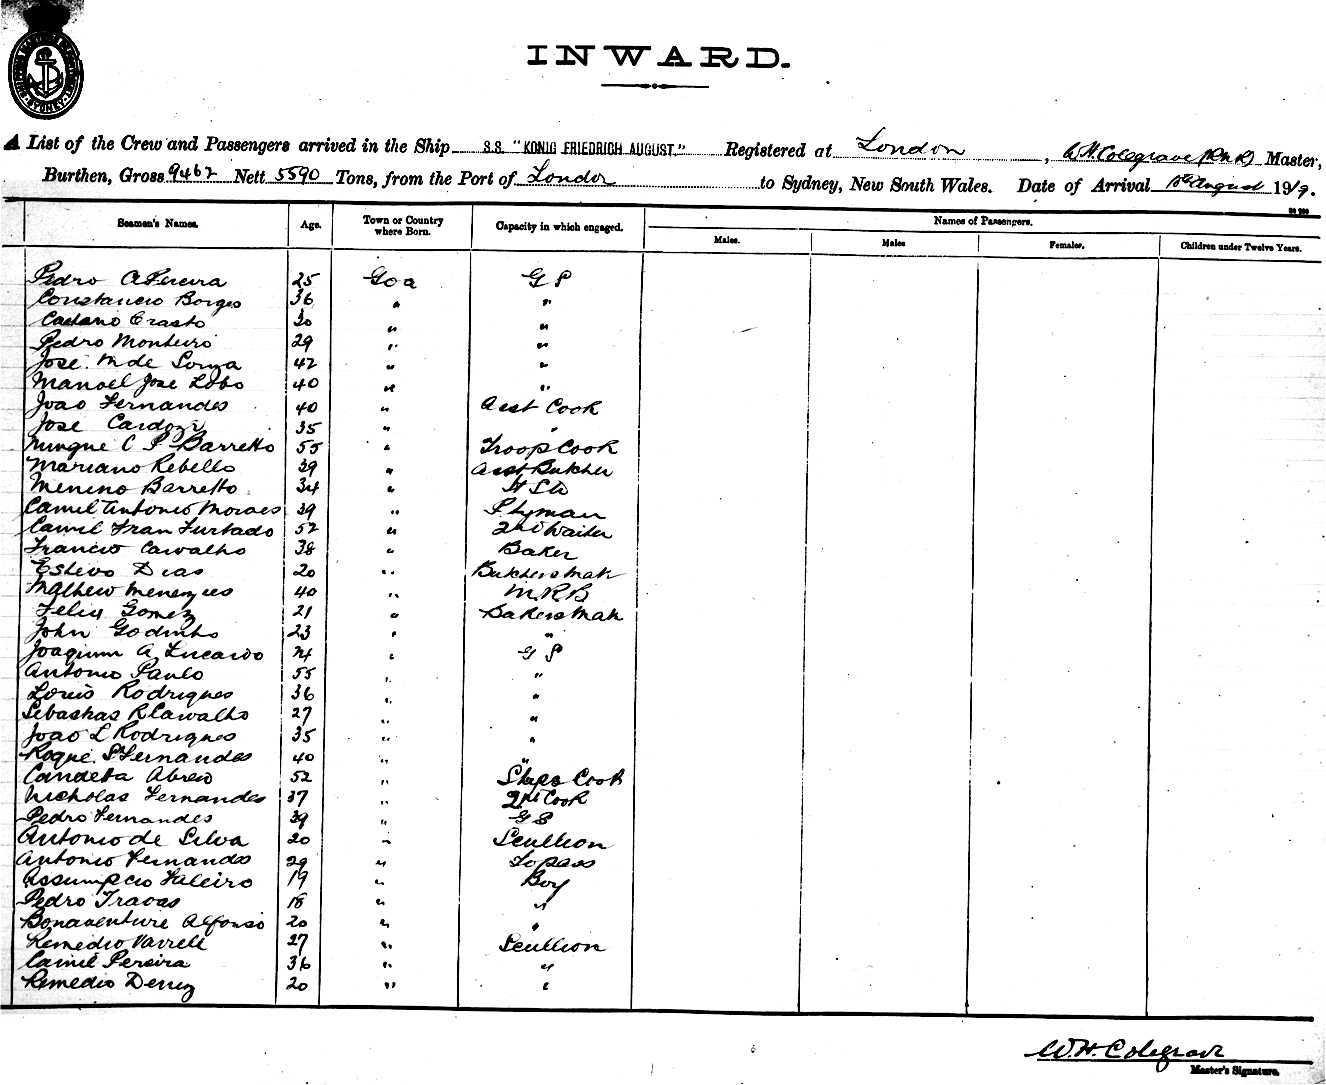 INWARD.
A List of the Crew and Passengers arrived in the Ship S.S. "KONIG FRIEDRICH AUGUST." Registered at London, W.H. Colegrave (RNR) Master,
Burthen, Gross 9462 Nett 5590 Tons, from the Port of London to Sydney, New South Wales. Date of Arrival August 1919.
Seamen's Names. Age. Town or Country where Born. Capacity in which engaged. Names of Passengers.
Males. Males Females. Children under Twelve Years.
Pedro A Pereira 25 Goa G S
Constancio Borges 36 " "
Caetano Erasto 30 " "
Pedro Monteiro 29 " "
Jose M de Souza 42 " "
Manoel Jose Lobo 40 " "
Joao Fernandes 40 " Asst Cook
Jose Cardozo 35 " "
C P Barretto 55 " Troop Cook
Mariano Rebello 39 " Asst Butcher
Menino Barretto 34 "
Camil Antonio Moraes 39 " Plyman
Camil Fran Furtado 52 " 2nd Waiter
Francis Carvalho 38 " Baker
Estevo Dias 20 " Butchers Mate
Mathew Menezes 40 " M R B
Felix Gomez 21 " Bakers Mate
John Godinho 23 " "
Joaquim A 24 " G S
Antonio Paulo 55 " "
Louis Rodrigues 36 " "
R Carvalho 27 " "
Joao L Rodrigues 35 " "
Roque S Fernandes 40 " "
Abreo 52 " Ships Cook
Nicholas Fernandes 37 " 2nd Cook
Pedro Fernandes 39 " G S
Antonio de Silva 20 " Scullion
Antonio Fernandes 29 " Topass
Assumpcio Faleiro 19 " Boy
Pedro Travas 18 " "
Bonaventure Alfonso 20 " "
Remedio Varrell 27 " Scullion
Camil Pereira 36 " "
Remedio Deniz 20 " "
W.H. Colegrave
Master's Signature.